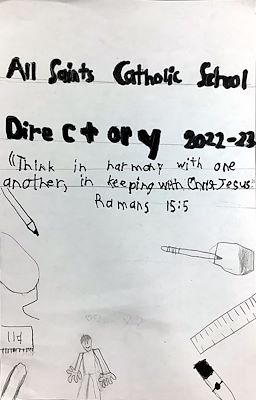 All Saints Catholic School
Directory 2022-23
"Think in harmony with one
another, in keeping with Christ Jesus"
Romans 15:5